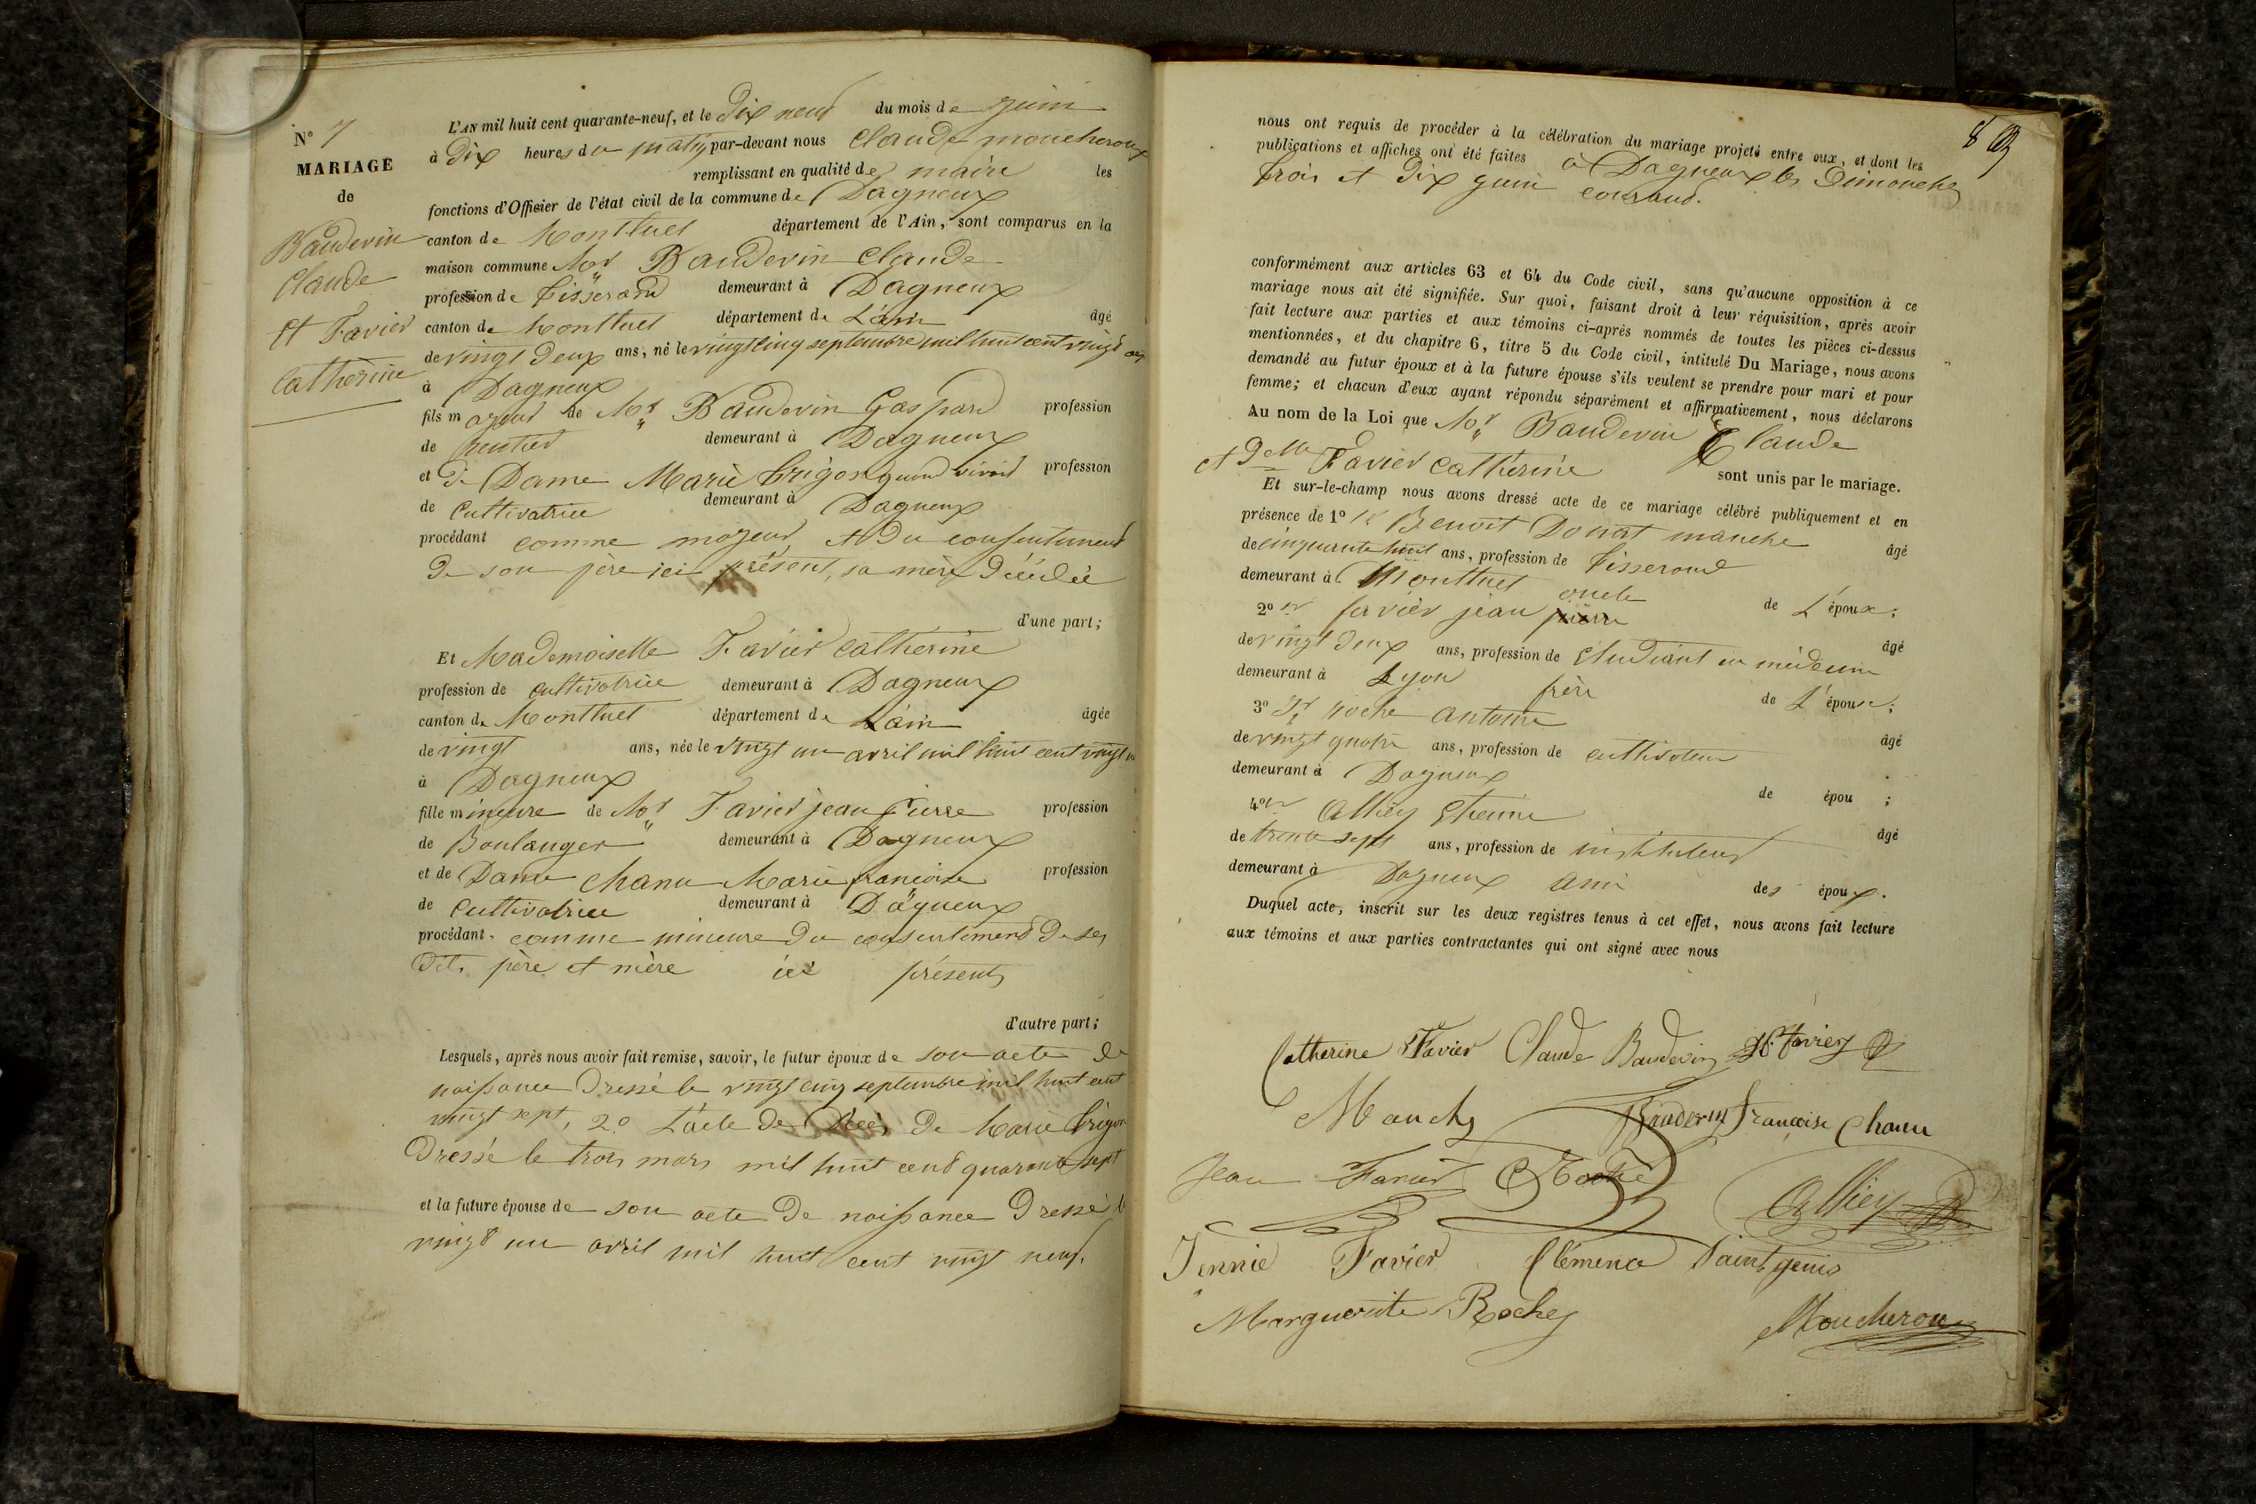 N° 7
MARIAGE
de
Baudevin
Claude
Et Favier
Catherine
L'AN mil huit cent quarante-neuf, et le dix neuf du mois de juin
à dix heures du matin par-devant nous Claude moucheroux
remplissant en qualité de maire les
fonctions d'Officier de l'état civil de la commune de Dagneux
canton de Montluel département de l'Ain, sont comparus en la
maison commune Mor Baudevin Claude
profession de tisserand demeurant à Dagneux
canton de Montluel département de L'ain âgé
de vingt deux ans, né le vingt cinq septembre mil huit cent vingt
à Dagneux
fils majeur de Mor Baudevin Gaspard profession
de rentier demeurant à Dagneux
et de Dame Marie Trigon quand vivait profession
de Cultivatrice demeurant à Dagneux
procédant comme majeur et du consentement
de son père ici présent, sa mère décédée
d'une part;
Et Mademoiselle Favier Catherine
profession de cultivatrice demeurant à Dagneux
canton de Montluel département de L'ain âgée
de vingt ans, née le vingt un avril mil huit cent vingt
à Dagneux
fille mineure de Mor Favier jean Pierre profession
de Boulanger demeurant à Dagneux
et de Dame Chanu Marie françoise profession
de Cultivatrice demeurant à Dagneux
procédant comme mineure du consentement de ses
dits père et mère ici présents
d'autre part;
Lesquels, après nous avoir fait remise, savoir, le futur époux de son acte de
naissance dressé le vingt cinq septembre mil huit cent
vingt sept, 2° L'acte de décès de Marie Trigon
dressé le trois mars mil huit cent quarante sept
et la future épouse de son acte de naissance dressé le
vingt un avril mil huit cent vingt neuf.
nous ont requis de procéder à la célébration du mariage projeté entre eux, et dont les
publications et affiches ont été faites à Dagneux les Dimanches
trois et dix juin courant.
conformément aux articles 63 et 64 du Code civil, sans qu'aucune opposition à ce
mariage nous ait été signifiée. Sur quoi, faisant droit à leur réquisition, après avoir
fait lecture aux parties et aux témoins ci-après nommés de toutes les pièces ci-dessus
mentionnées, et du chapitre 6, titre 5 du Code civil, intitulé Du Mariage, nous avons
demandé au futur époux et à la future épouse s'ils veulent se prendre pour mari et pour
femme; et chacun d'eux ayant répondu séparément et affirmativement, nous déclarons
Au nom de la Loi que Mor Baudevin Claude
et Delle Favier Catherine sont unis par le mariage.
Et sur-le-champ nous avons dressé acte de ce mariage célébré publiquement et en
présence de 1° Benoit Donat manche âgé
de cinquante huit ans, profession de tisserand
demeurant à Montluel oncle de L'époux;
2° favier jean pierre âgé
de vingt deux ans, profession de étudiant en médecine
demeurant à Lyon frère de L'épouse;
3° roche antoine âgé
de vingt quatre ans, profession de cultivateur
demeurant à Dagneux de épou ;
4° Alliey Etienne âgé
de trente sept ans, profession de instituteur
demeurant à Dagneux ami des époux.
Duquel acte, inscrit sur les deux registres tenus à cet effet, nous avons fait lecture
aux témoins et aux parties contractantes qui ont signé avec nous
Catherine Favier Claude Baudevin Favier
Manche Baudevin françoise Chanu
Jean Favier Roche Alliey
Jennie Favier Clémence Saintgenis
Marguerite Roche Moucheroux